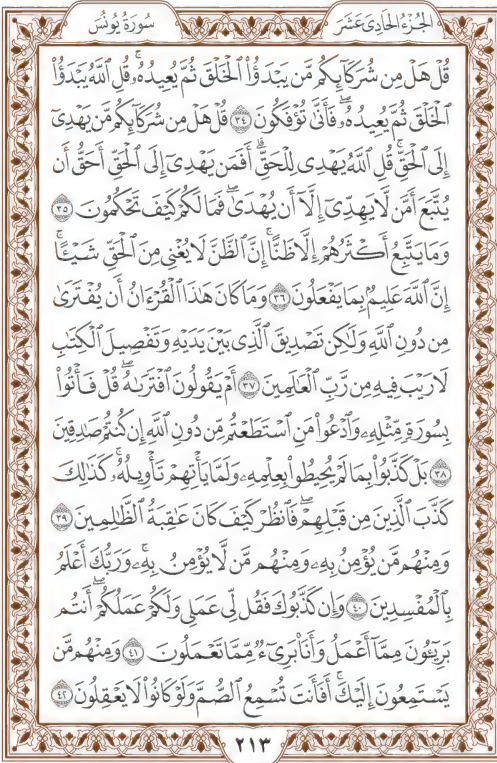 الجُزْءُ الحَادِى عَشَرَ سُورَةُ يُونُسَ
قُلْ هَلْ مِن شُرَكَآئِكُم مَّن يَبْدَؤُا۟ ٱلْخَلْقَ ثُمَّ يُعِيدُهُۥ ۚ قُلِ ٱللَّهُ يَبْدَؤُا۟
ٱلْخَلْقَ ثُمَّ يُعِيدُهُۥ ۖ فَأَنَّىٰ تُؤْفَكُونَ ٣٤ قُلْ هَلْ مِن شُرَكَآئِكُم مَّن يَهْدِىٓ
إِلَى ٱلْحَقِّ ۚ قُلِ ٱللَّهُ يَهْدِى لِلْحَقِّ ۗ أَفَمَن يَهْدِىٓ إِلَى ٱلْحَقِّ أَحَقُّ أَن
يُتَّبَعَ أَمَّن لَّا يَهِدِّىٓ إِلَّآ أَن يُهْدَىٰ ۖ فَمَا لَكُمْ كَيْفَ تَحْكُمُونَ ٣٥
وَمَا يَتَّبِعُ أَكْثَرُهُمْ إِلَّا ظَنًّا ۚ إِنَّ ٱلظَّنَّ لَا يُغْنِى مِنَ ٱلْحَقِّ شَيْـًٔا ۚ
إِنَّ ٱللَّهَ عَلِيمٌۢ بِمَا يَفْعَلُونَ ٣٦ وَمَا كَانَ هَـٰذَا ٱلْقُرْءَانُ أَن يُفْتَرَىٰ
مِن دُونِ ٱللَّهِ وَلَـٰكِن تَصْدِيقَ ٱلَّذِى بَيْنَ يَدَيْهِ وَتَفْصِيلَ ٱلْكِتَـٰبِ
لَا رَيْبَ فِيهِ مِن رَّبِّ ٱلْعَـٰلَمِينَ ٣٧ أَمْ يَقُولُونَ ٱفْتَرَىٰهُ ۖ قُلْ فَأْتُوا۟
بِسُورَةٍ مِّثْلِهِۦ وَٱدْعُوا۟ مَنِ ٱسْتَطَعْتُم مِّن دُونِ ٱللَّهِ إِن كُنتُمْ صَـٰدِقِينَ
٣٨ بَلْ كَذَّبُوا۟ بِمَا لَمْ يُحِيطُوا۟ بِعِلْمِهِۦ وَلَمَّا يَأْتِهِمْ تَأْوِيلُهُۥ ۚ كَذَٰلِكَ
كَذَّبَ ٱلَّذِينَ مِن قَبْلِهِمْ ۖ فَٱنظُرْ كَيْفَ كَانَ عَـٰقِبَةُ ٱلظَّـٰلِمِينَ ٣٩
وَمِنْهُم مَّن يُؤْمِنُ بِهِۦ وَمِنْهُم مَّن لَّا يُؤْمِنُ بِهِۦ ۚ وَرَبُّكَ أَعْلَمُ
بِٱلْمُفْسِدِينَ ٤٠ وَإِن كَذَّبُوكَ فَقُل لِّى عَمَلِى وَلَكُمْ عَمَلُكُمْ ۖ أَنتُم
بَرِيٓـُٔونَ مِمَّآ أَعْمَلُ وَأَنَا۠ بَرِىٓءٌ مِّمَّا تَعْمَلُونَ ٤١ وَمِنْهُم مَّن
يَسْتَمِعُونَ إِلَيْكَ ۚ أَفَأَنتَ تُسْمِعُ ٱلصُّمَّ وَلَوْ كَانُوا۟ لَا يَعْقِلُونَ ٤٢
٢١٣